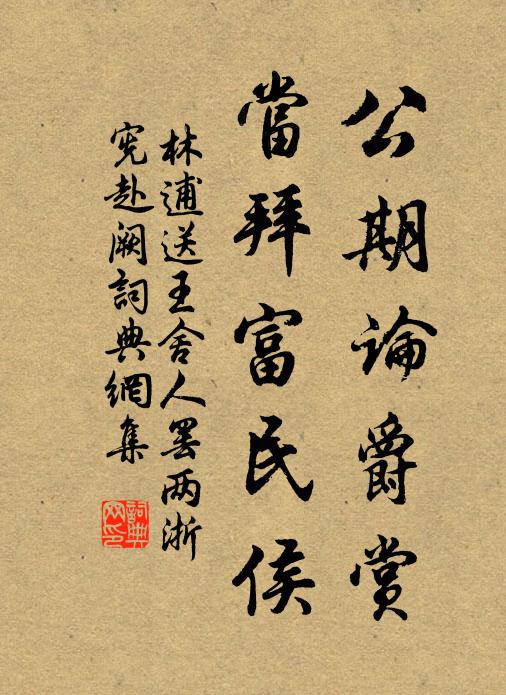 公期論爵賞
當拜富民侯
林逋送王舍人罷两浙
宪赴阙詞典網集
詞典網印